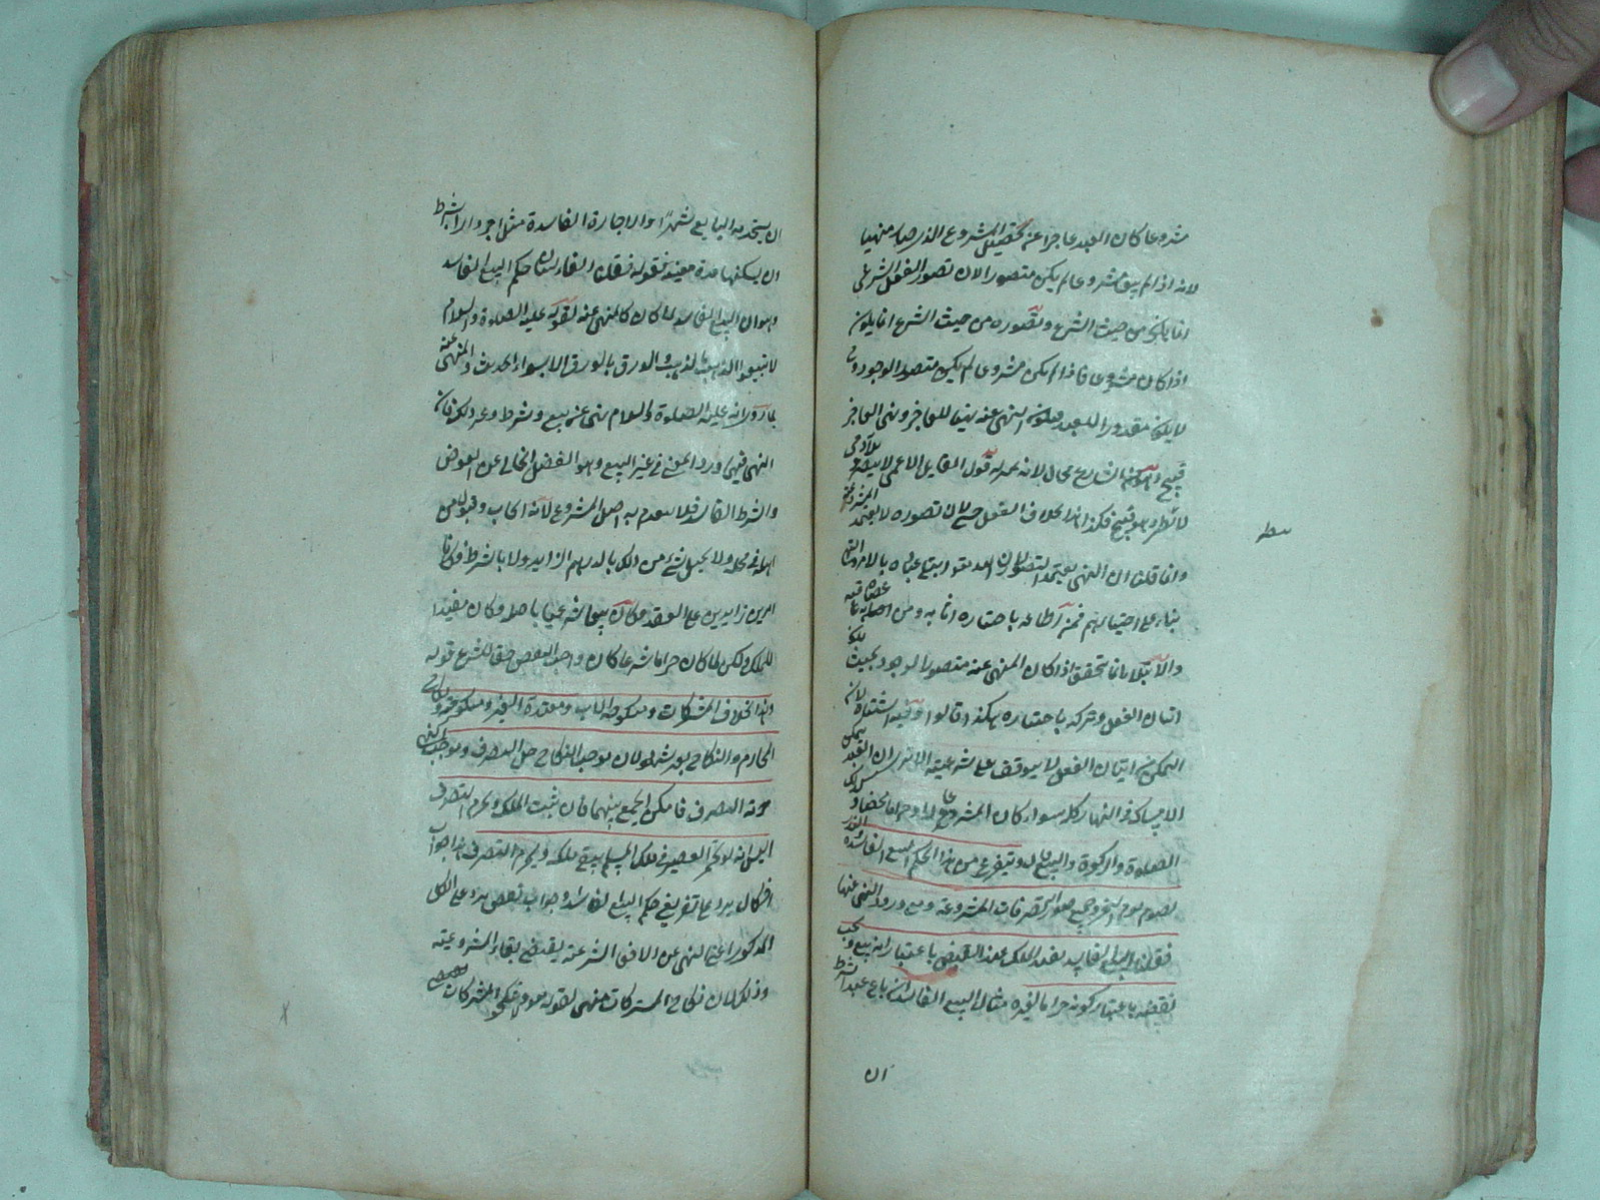 مشروعا كان العبد عاجزا عن تحصيل المشروع الذى صار منهيا
لانه اذا لم يبق مشروعا لم يكن متصورا لان تصور الفعل الشرعى
انما يكون من حيث الشرع وتصوره من حيث الشرع انما يكون
اذا كان مشروعا فاذا لم يكن مشروعا لم يكن متصور الوجود و
لا يكون مقدورا للعبد فيكون النهى عنه نهيا للعاجز ونهى العاجز
قبيح من الشارع محال لانه بمنزلة قول القايل للاعمى لا تبصر وللآدمى
لا تطر وهو قبيح فكذا هذا بخلاف الفعل الحسى لان تصوره لا يعتمد المشروعية
وانما قلنا ان النهى يعتمد التصور لان الله تعالى ابتلى عباده بالامر والنهى
بناء على اختيارهم فمن اطاعه باختياره اثابه ومن عصاه عاقبه
والابتلاء انما يتحقق اذا كان المنهى عنه متصور الوجود بحيث يكون
اتيان الفعل وتركه باختياره هكذا قالوا وفيه اشتباه لان
التمكن من اتيان الفعل لا يتوقف على شرعيته الا ترى ان العبد يتمكن
الامساك فى النهار كله سواء كان المشروع حلالا او حراما محضا وكذلك
الصلوة والزكوة والبيع قال ويتفرع من هذا الحكم البيع الفاسد والنذر
بصوم يوم النحر وجميع صور التصرفات المشروعة مع ورود النهى عنها
فقلنا البيع الفاسد يفيد الملك عند القبض باعتبار انه بيع ويجب
نقضه باعتبار كونه حراما لغيره مثال البيع الفاسد ان باع عبدا بشرط
ان
ان يستخدمه البايع شهرا والاجارة الفاسدة مثل اجر دارا بشرط
ان يسكنها مدة معينة فقوله فقلنا الفاء لبيان حكم البيع الفاسد
وهو ان البيع الفاسد لما كان كالمنهى عنه لقوله عليه الصلوة والسلام
لا تبيعوا الذهب بالذهب والورق بالورق الا سواء الحديث والمنهى عنه
بما روى انه عليه الصلوة والسلام نهى عن بيع وشرط وغير ذلك فان
النهى فيها ورد لمعنى فى غير البيع وهو الفضل الخالى عن العوض
والشرط الفاسد فلا ينعدم به اصل المشروع لانه ايجاب وقبول من
اهله فى محله ولا يختل شىء من ذلك بالدرهم الزايد ولا بالشرط فكانا
امرين زايدين على العقد فكان بيعا شرعيا باصله وكان مفيدا
للملك ولكن لما كان حراما شرعا كان واجب النقض حقا للشرع قوله
وهذا بخلاف المشركات ومنكوحة الاب ومعتدة الغير ومنكوحته ونكاح
المحارم والنكاح بغير شهود لان موجب النكاح حل التصرف وموجب النهى
حرمة التصرف فامكن الجمع بينهما فان يثبت الملك ويحرم التصرف
اليس انه لو تخمر العصير فى ملك المسلم يبقى ملكه ويحرم التصرف هذا جواب
اشكال يرد على تفريعى حكم البيع الفاسد وجواب نقض يرد على الكل
المذكور اعنى النهى عن الافعال الشرعية يقتضى بقاء المشروعية
وذلك لان نكاح المشركات منهى لقوله ولا تنكحوا المشركات